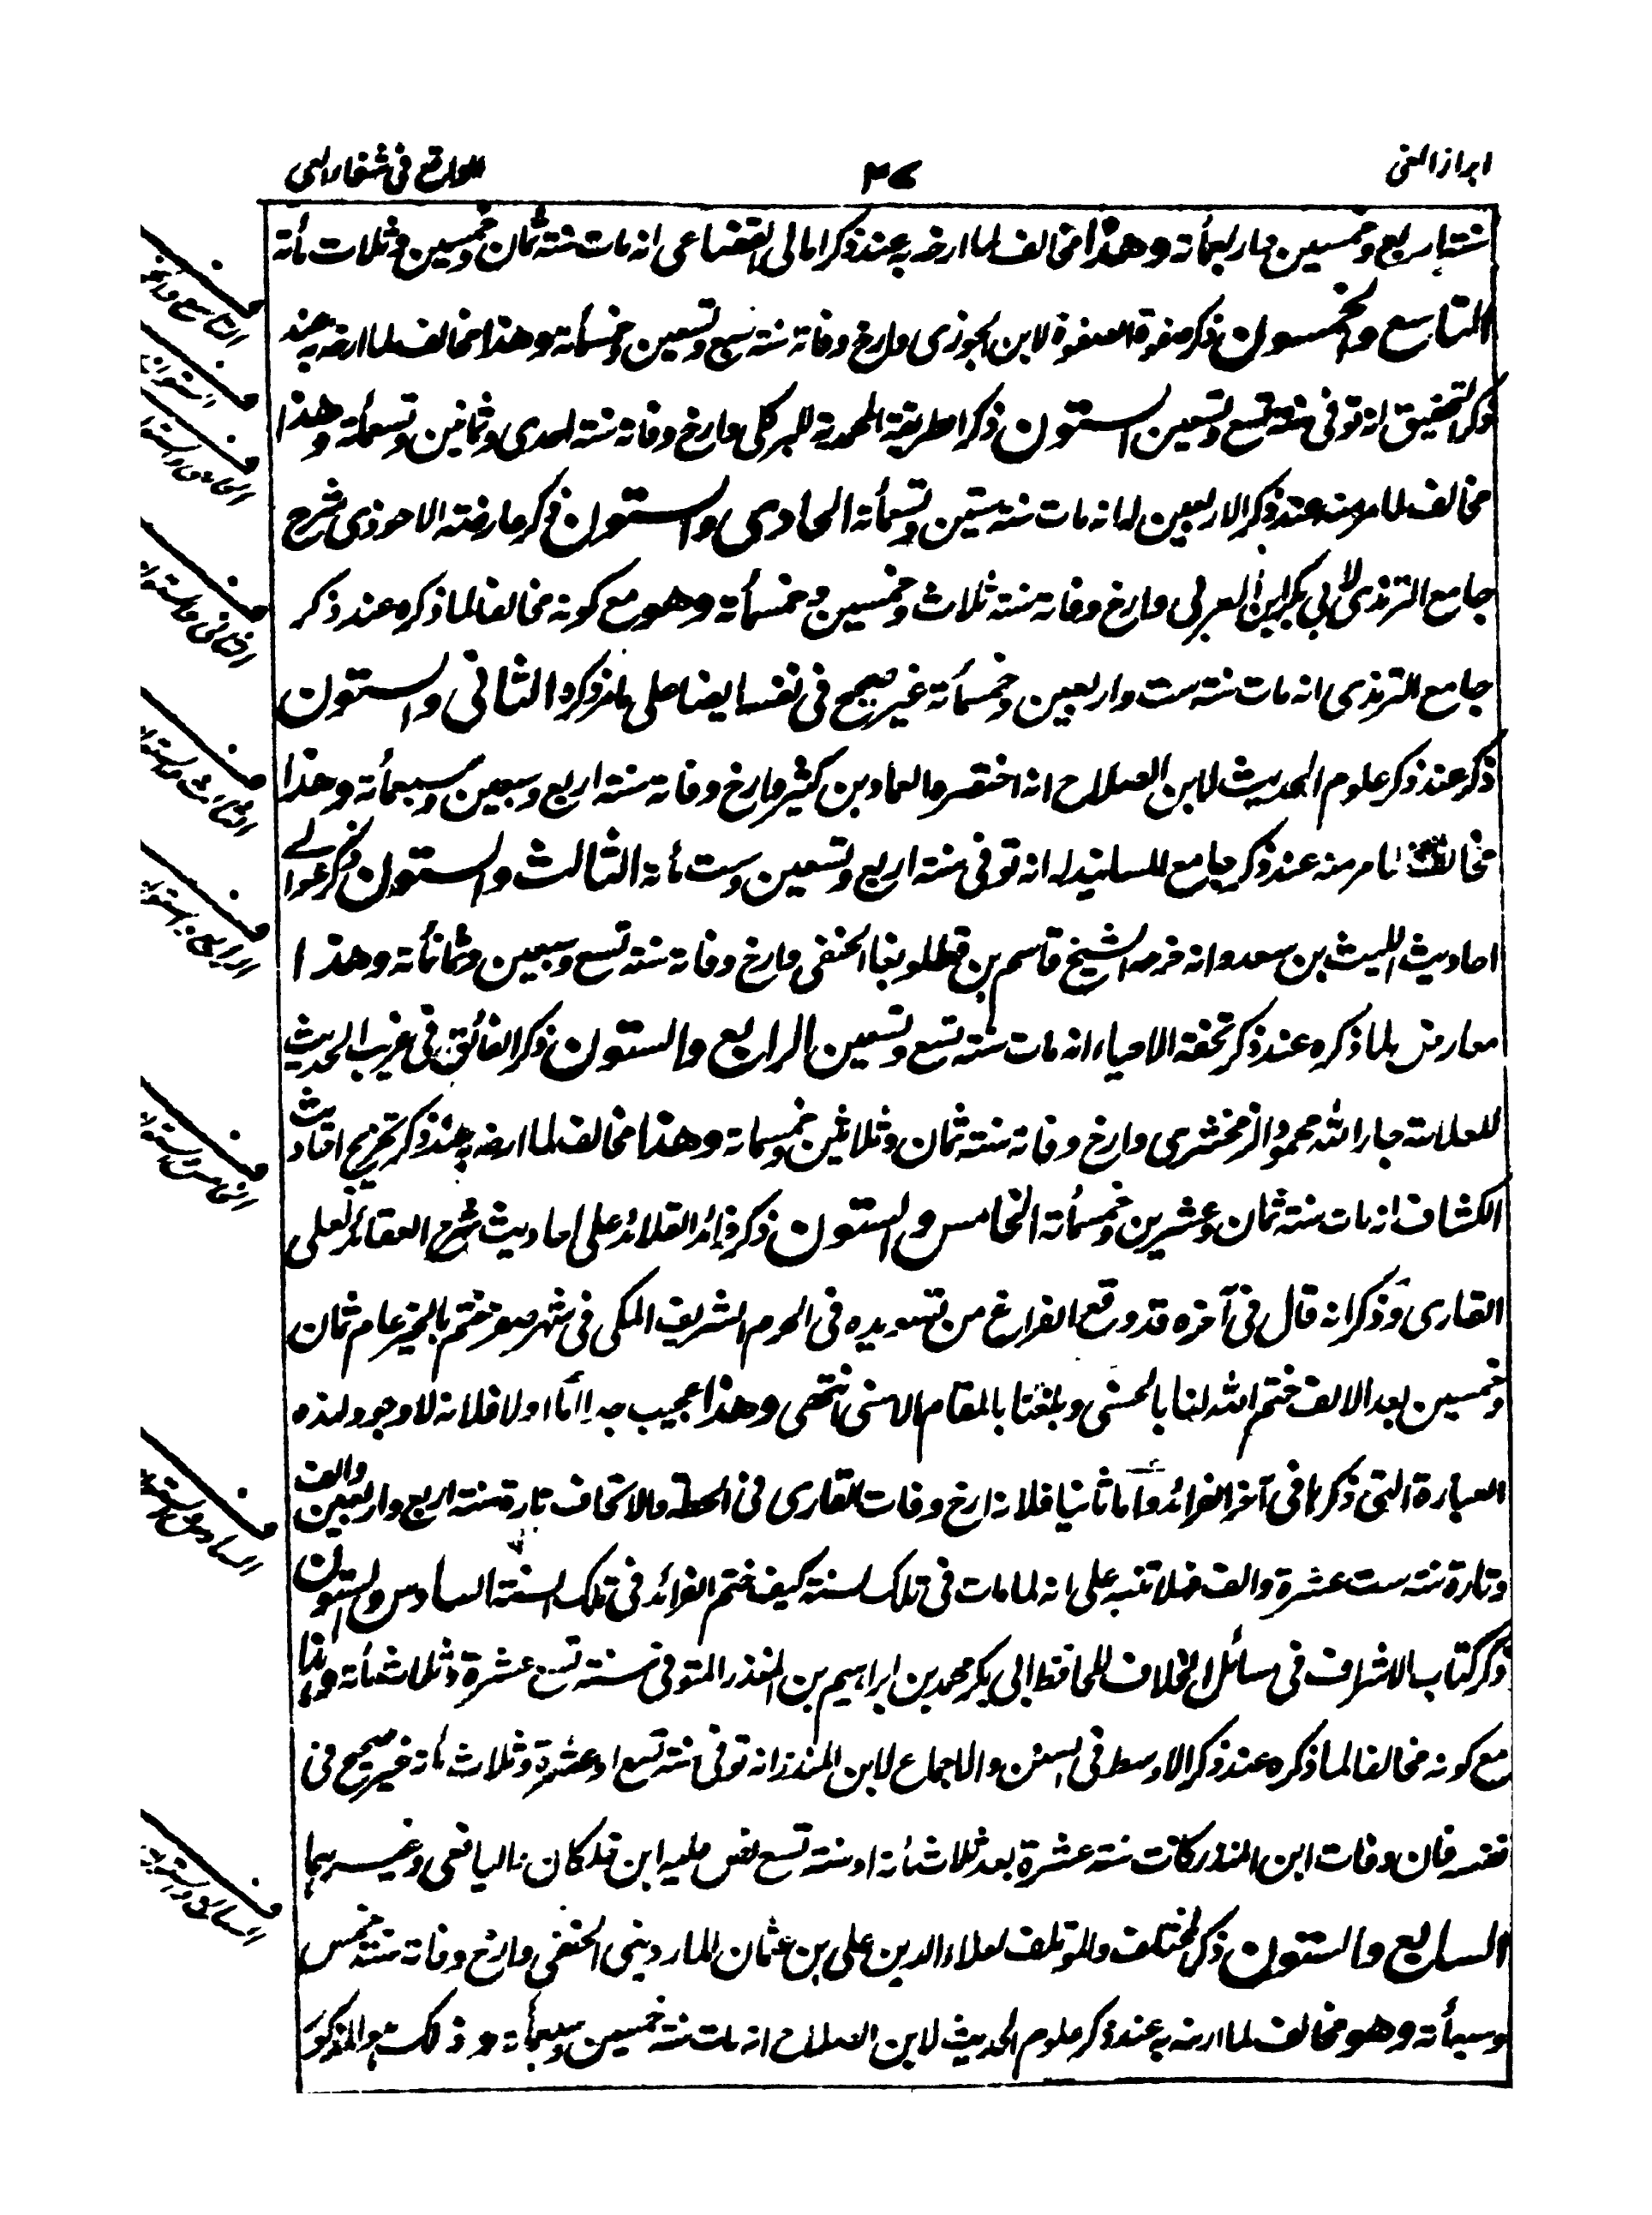 ابراز الغی
٢٧
الواقع فی شفاء العی
سنة اربع وخمسين واربعمأة وهذا مخالف لما ارخه به عند ذكر امالی القضاعی انه مات سنة ثمان وخمسين وثلاث مأة
التاسع والخمسون ذكر صفوة الصفوة لابن الجوزی وارخ وفاته سنة سبع وتسعين وخمسمأة وهذا مخالف لما ارخه به عند
ذكر التحقيق انه توفی سنة تسع وتسعين الستون ذكر الطريقة المحمدية للبركلی وارخ وفاته سنة احدی وثمانين وتسعمأة وهذا
مخالف لما مر منه عند ذكر الاربعين له انه مات سنة ستين وتسعمأة الحادی والستون ذكر عارضة الاحوذی شرح
جامع الترمذی لابی بكر ابن العربی وارخ وفاته سنة ثلاث وخمسين وخمسمأة وهو مع كونه مخالفا لما ذكره عند ذكر
جامع الترمذی انه مات سنة ست واربعين وخمسمأة غير صحيح فی نفسه ايضا علی ما مر ذكره الثانی والستون
ذكر عند ذكر علوم الحديث لابن الصلاح انه اختصره العماد بن كثير وارخ وفاته سنة اربع وسبعين وسبعمأة وهذا
مخالف لما مر منه عند ذكر جامع المسانيد له انه توفی سنة اربع وتسعين وست مأة الثالث والستون ذكر عوالے
احاديث الليث بن سعد وانه خرجه الشيخ قاسم بن قطلوبغا الحنفی وارخ وفاته سنة تسع وسبعين وثمانمأة وهذا
معارض لما ذكره عند ذكر تحفة الاحياء انه مات سنة تسع وتسعين الرابع والستون ذكر الفائق فی غريب الحديث
للعلامة جار الله محمود الزمخشری وارخ وفاته سنة ثمان وثلاثين وخمسماة وهذا مخالف لما ارخه به عند ذكر تخريج احاديث
الكشاف انه مات سنة ثمان وعشرين وخمسمأة الخامس والستون ذكر فرائد القلائد علی احاديث شرح العقائد لعلی
القاری وذكر انه قال فی آخره قد وقع الفراغ من تسويده فی الحرم الشريف المكی فی شهر صفر ختم بالخير عام ثمان
وخمسين بعد الالف ختم الله لنا بالحسنی وبلغنا بالمقام الاسنی انتهی وهذا عجيب جدا اما اولا فلانه لا وجود لهذه
العبارة التی ذكرها فی آخر الفرائد واما ثانيا فلانه ارخ وفات القاری فی الحطة والاتحاف تارة سنة اربع واربعين والف
وتارة سنة ست عشرة والف فهلا تنبه علی انه لما مات فی تلك السنة كيف ختم الفرائد فی تلك السنة السادس والستون
ذكر كتاب الاشراف فی مسائل الخلاف للحافظ ابی بكر محمد بن ابراهيم بن المنذر المتوفی سنة تسع عشرة وثلاث مأة وهذا
مع كونه مخالفا لما ذكره عند ذكر الاوسط فی السنن والاجماع لابن المنذر انه توفی سنة تسع او عشرة وثلاث مأة غير صحيح فی
نفسه فان وفات ابن المنذر كانت سنة عشرة بعد ثلاث مأة او سنة تسع نص عليه ابن خلكان واليافعی وغيرهما
السابع والستون ذكر المختلف والمؤتلف لعلاء الدين علی بن عثمان الماردينی الحنفی وارخ وفاته سنة خمس
وسبعمأة وهو مخالف لما ارخه به عند ذكر علوم الحديث لابن الصلاح انه مات سنة خمسين وسبعمأة وذلك هو المذكور
الستون